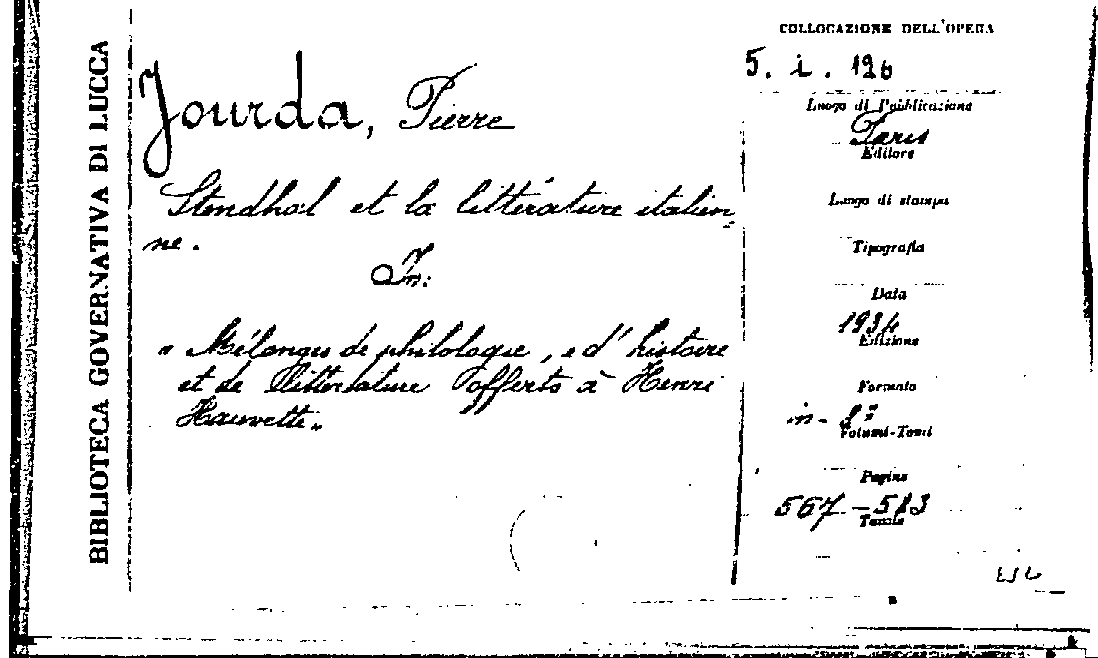 BIBLIOTECA GOVERNATIVA DI LUCCA
Jourda, Pierre
Stendhal et la littérature italien-
ne.
In:
« Mélanges de philologie, e d'histoire
et de littérature offerts à Henri
Hauvette»
COLLOCAZIONE DELL'OPERA
5. i. 126
Luogo di Pubblicazione
Paris
Editore
Luogo di stampa
Tipografia
Data
1934
Edizione
Formato
in-8°
Volumi-Tomi
Pagine
567-
Tavole